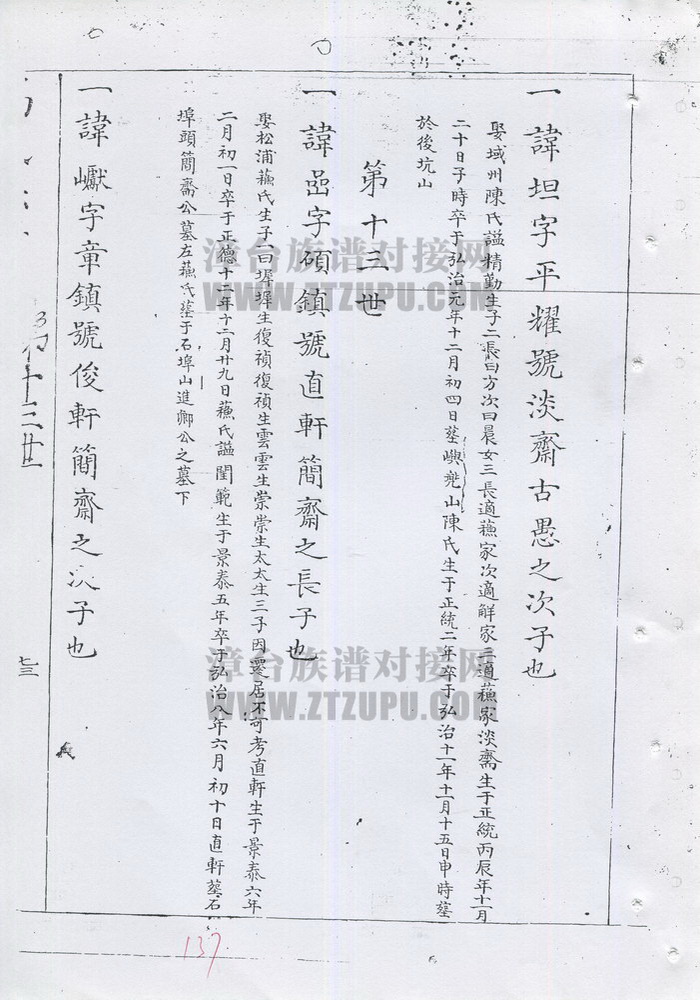 一諱坦字平耀號淡齋古愚之次子也
娶域州陳氏謚精勤生子二長曰方次曰晨女三長適蘓家次適鮮家三適蘓家淡齋生于正統丙辰年十一月
二十日子時卒于弘治元年十二月初四日塟嶼兠山陳氏生于正統二年卒于弘治十一年十一月十五日申時塟
於後坑山
第十三世
一諱嵒字碩鎮號直軒簡齋之長子也
娶松浦蘓氏生子一曰墀墀生復禎復禎生雲雲生崇崇生太太生三子因遷居不可考直軒生于景泰六年
二月初一日卒于正德十二年十二月廿九日蘓氏謚閨範生于景泰五年卒于弘治八年六月初十日直軒塟石
埠頭簡齋公墓左蘓氏塟于石埠山進卿公之墓下
一諱巘字章鎮號俊軒簡齋之次子也
十三世
七三
137
漳台族谱对接网
WWW.ZTZUPU.COM
漳台族谱对接网
WWW.ZTZUPU.COM